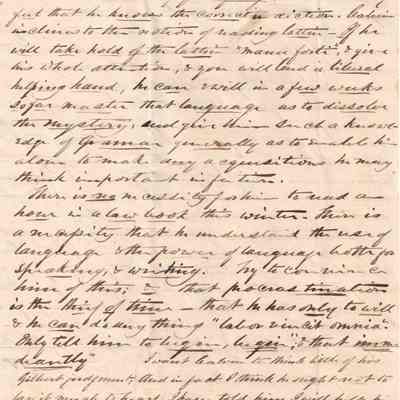 feel that he knows the correct in diction. Calvin
inclines to the notion of reading latin - if he
will take hold of the latin "manu forti", & give
his whole attention, & you will lend a liberal
helping hand, he can & will in a few weeks
so far master that language as to dissolve
the mystery, and give him such a knowl-
edge of Gramar generally as to enable him
alone to make any acquisitions he may
think important in future.
There is no necessity for him to read an
hour in a law book this winter. there is
a necessity that he understand the use of
language & the power of language both for
speaking, & writing. Try to convince
him of this; & that procrastination
is the thief of time - that he has only to will
& he can do any thing "labor vincit omnia".
Only tell him to begin, begin, & that imme
diantly" I want Calvin to think little of his
Gilbert judgment, And in fact I think he ought not to